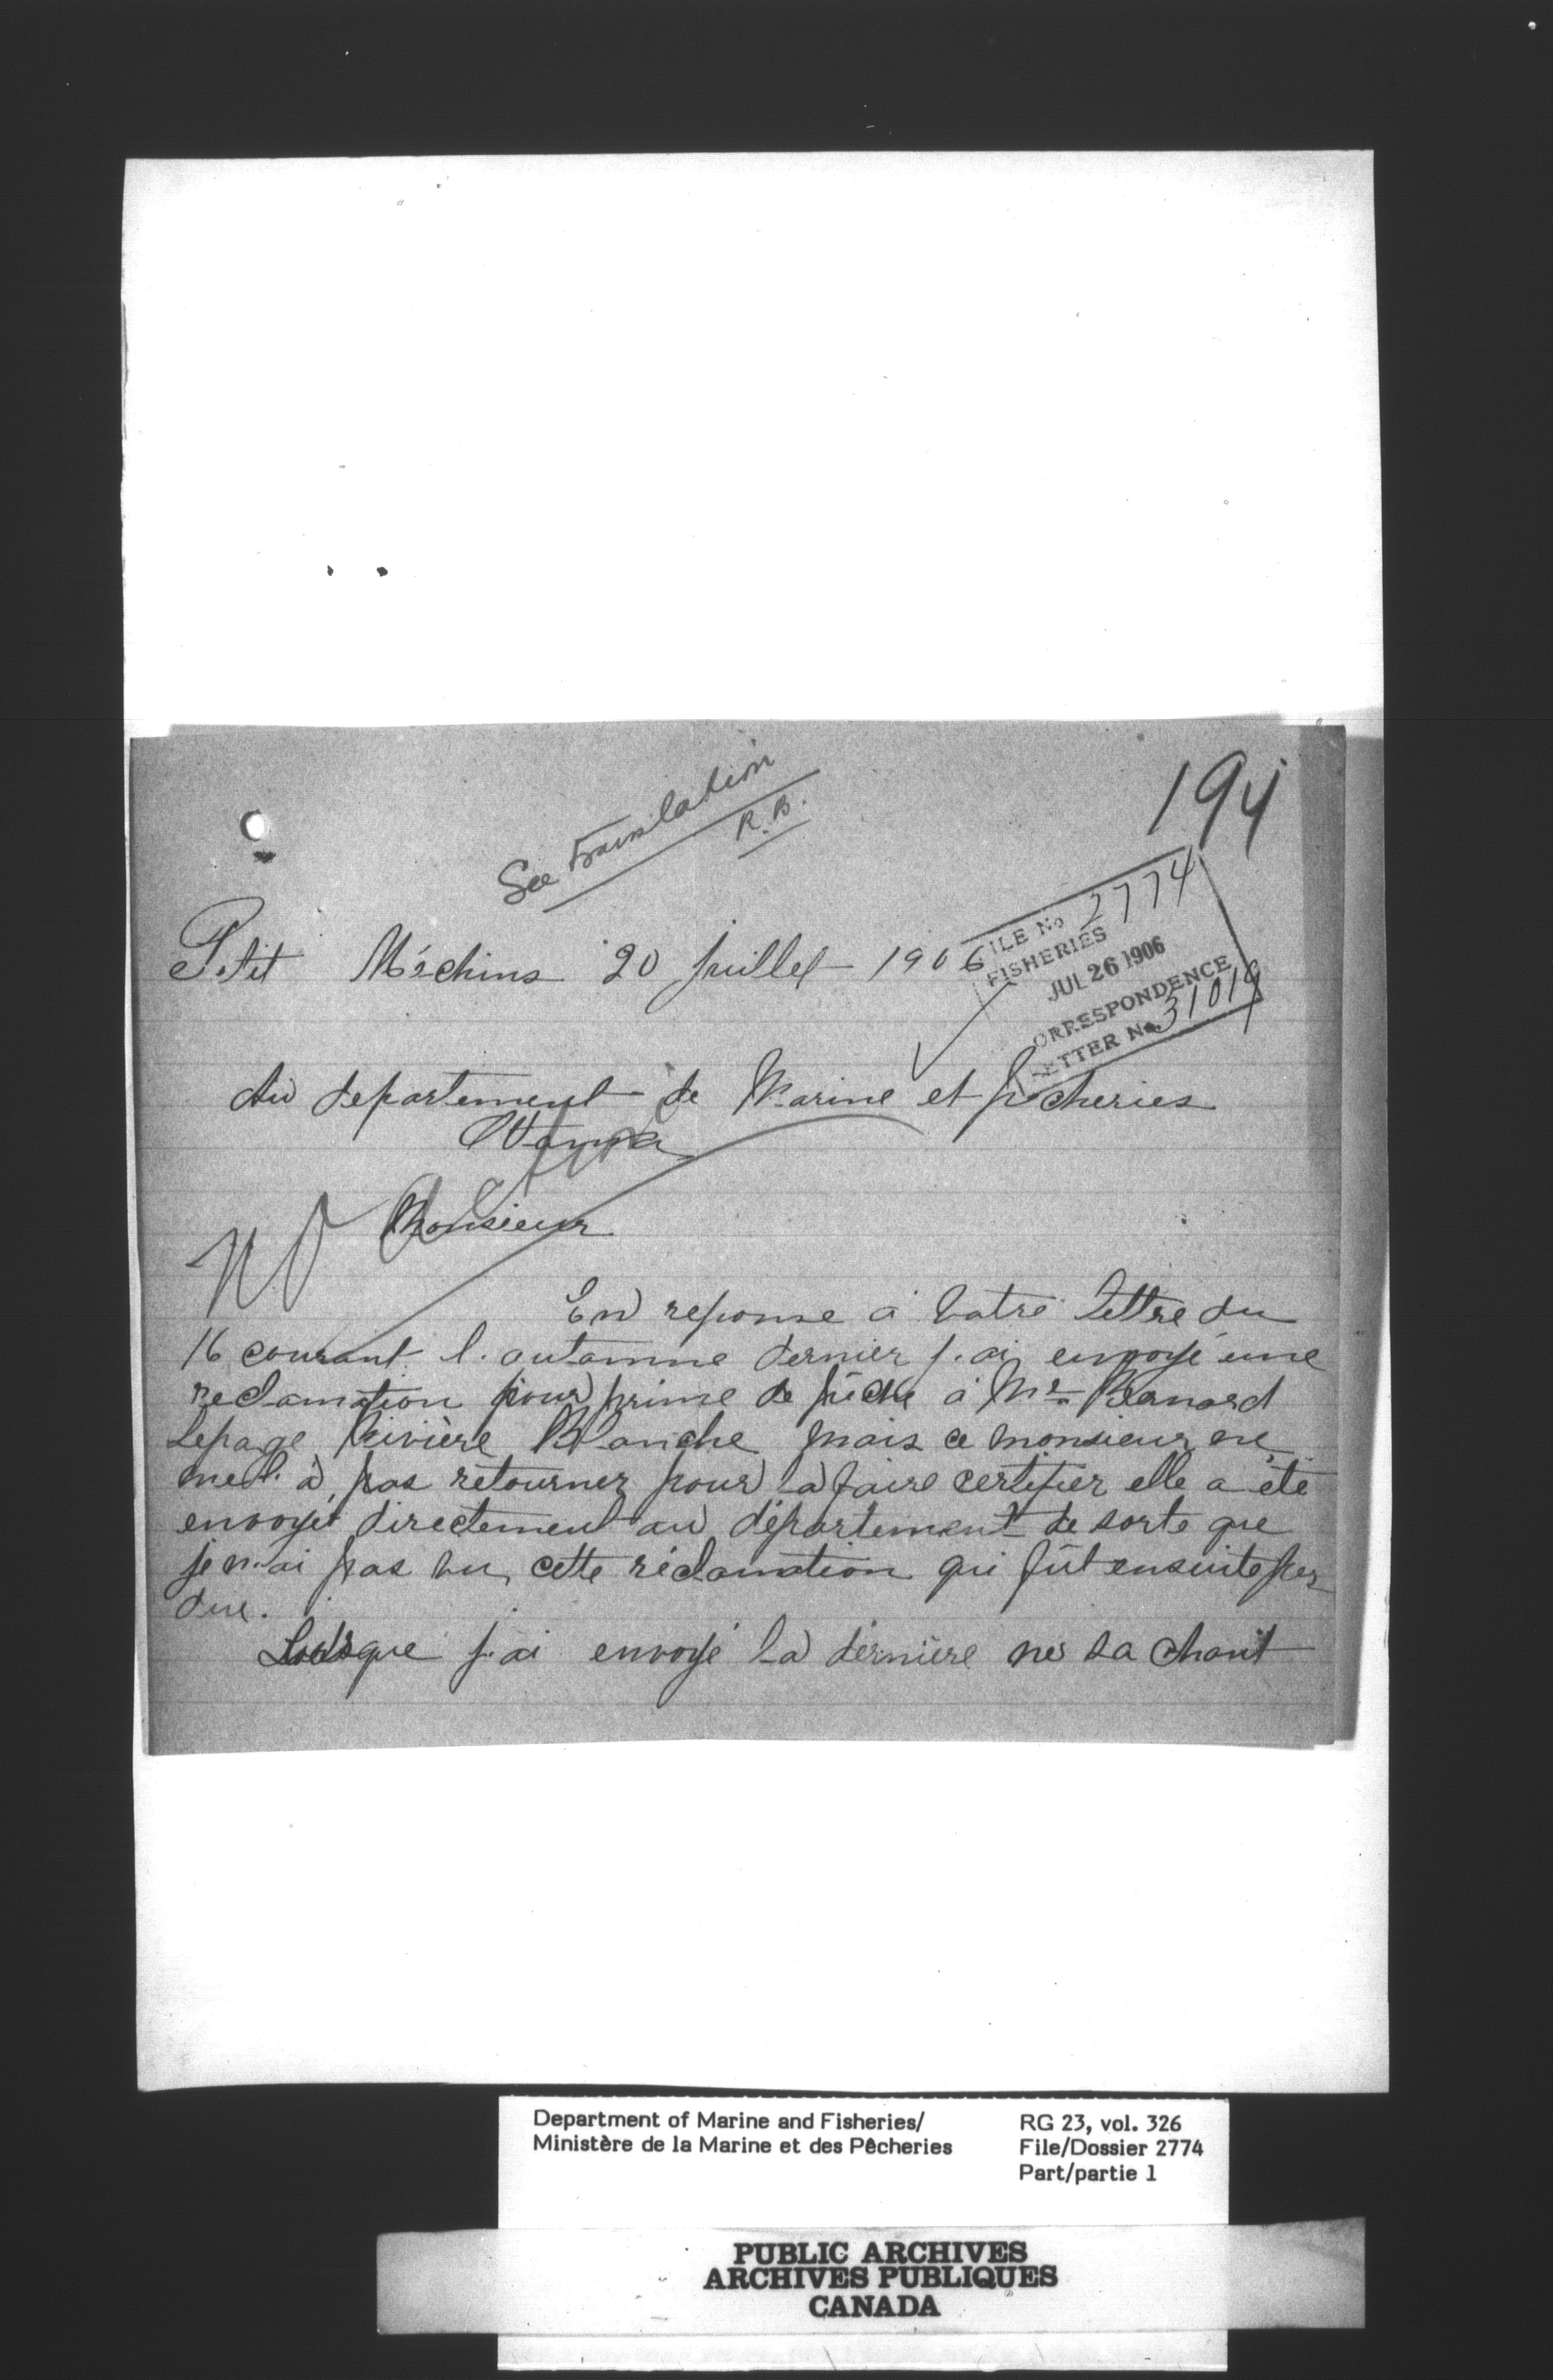 See translation
R.B.
194
FILE No 2774
FISHERIES
JUL 26 1906
CORRESPONDENCE
LETTER No 31019
Petit Méchins 20 Juillet 1906
Au departement de Marine et pêcheries
Ottawa
Monsieur
En reponse a votre lettre du
16 courant l'automne dernier j'ai envoyé une
reclamation pour prime de pêche à Mr Bernard
Lepage Rivière Blanche mais ce monsieur ne
me l'à pas retourner pour la faire certifier elle a été
envoyé directement au département de sorte que
je n'ai pas vu cette réclamation qui fût ensuite per-
due.
Lorsque j'ai envoyé la dernière ne sachant
Department of Marine and Fisheries/
Ministère de la Marine et des Pêcheries
RG 23, vol. 326
File/Dossier 2774
Part/partie 1
PUBLIC ARCHIVES
ARCHIVES PUBLIQUES
CANADA